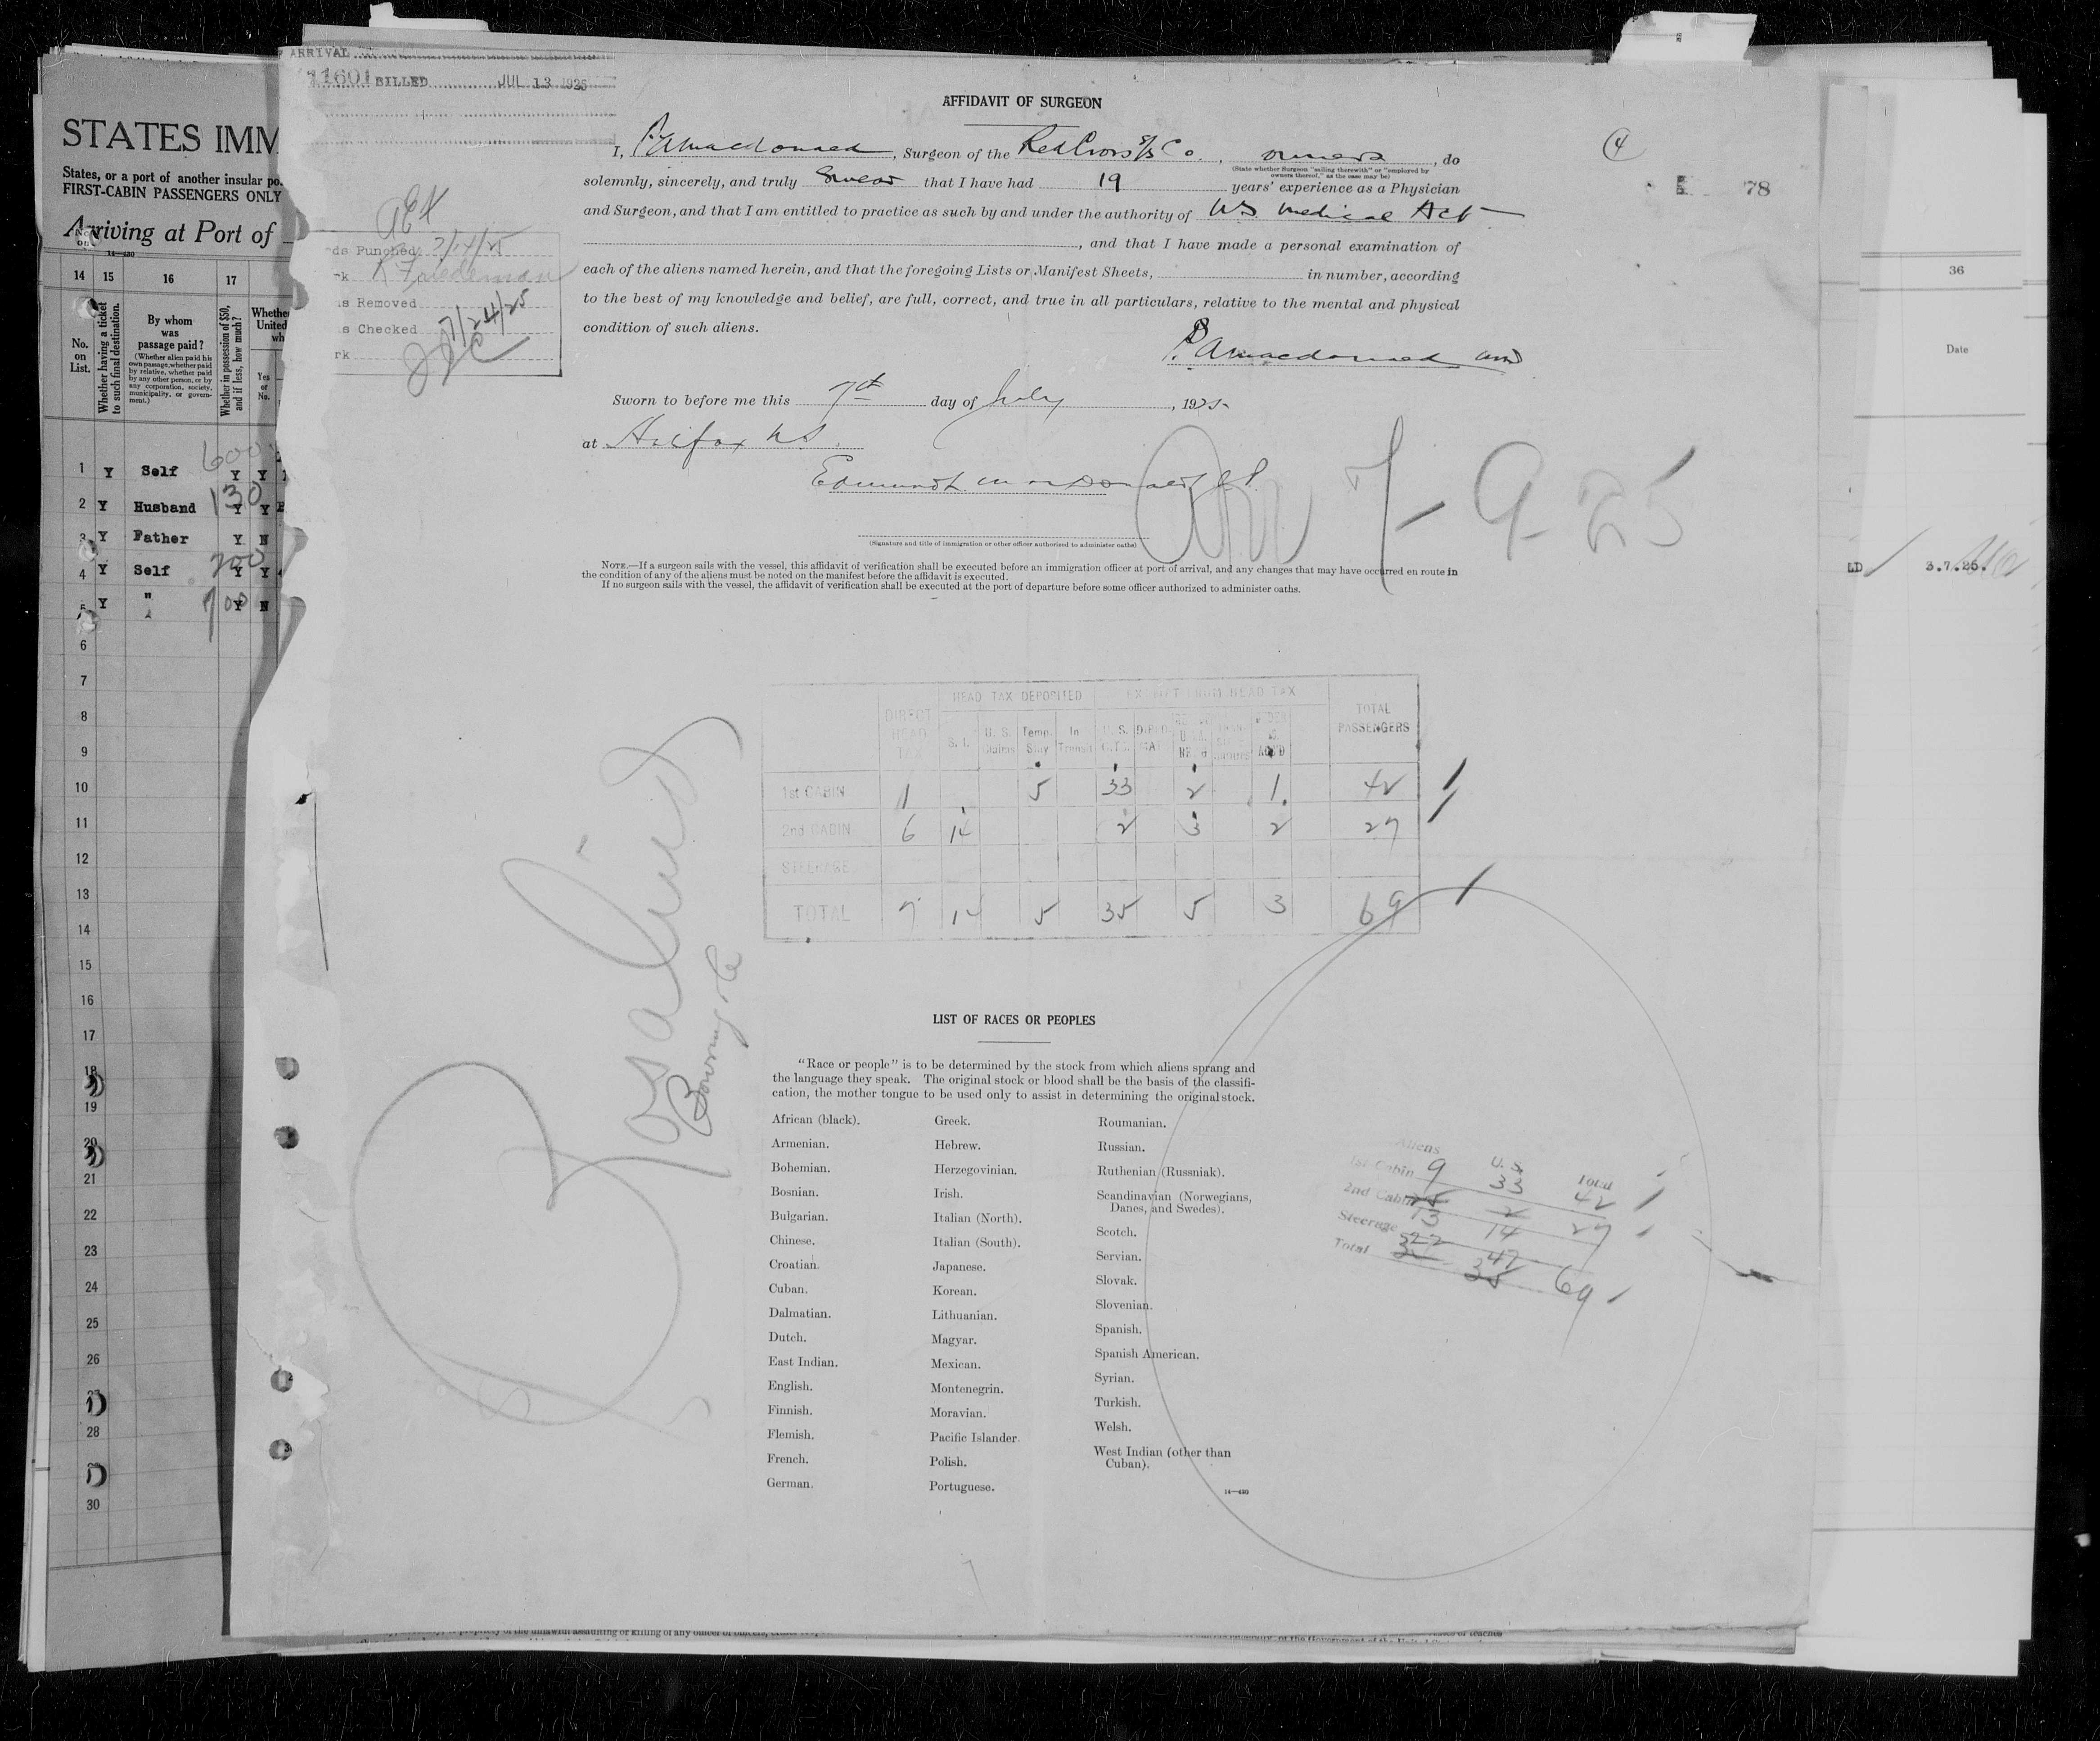 ARRIVAL
11601 BILLED JUL 13 1925
AFFIDAVIT OF SURGEON
I, P A Macdonald, Surgeon of the Red Cross S/S Co., owners, do
(State whether Surgeon "sailing therewith" or "employed by owners thereof," as the case may be)
solemnly, sincerely, and truly Swear that I have had 19 years' experience as a Physician
and Surgeon, and that I am entitled to practice as such by and under the authority of NS Medical Act
, and that I have made a personal examination of
each of the aliens named herein, and that the foregoing Lists or Manifest Sheets, in number, according
to the best of my knowledge and belief, are full, correct, and true in all particulars, relative to the mental and physical
condition of such aliens.
P. A Macdonald MD
Sworn to before me this 7th day of July, 1925
at Halifax NS.
(Signature and title of immigration or other officer authorized to administer oaths)
NOTE.—If a surgeon sails with the vessel, this affidavit of verification shall be executed before an immigration officer at port of arrival, and any changes that may have occurred en route in
the condition of any of the aliens must be noted on the manifest before the affidavit is executed.
If no surgeon sails with the vessel, the affidavit of verification shall be executed at the port of departure before some officer authorized to administer oaths.
4
78
7-9-25
ds Punched 7/24/25
k K Friedeman
s Removed
s Checked 7/24/25
rk
STATES IMM
States, or a port of another insular po
FIRST-CABIN PASSENGERS ONLY
Arriving at Port of
14—430
14 15 16 17
No. on List.
Whether having a ticket to such final destination.
By whom was passage paid?
(Whether alien paid his own passage, whether paid by relative, whether paid by any other person, or by any corporation, society, municipality, or government.)
Whether in possession of $50, and if less, how much?
Whether
United
wh
Yes or No.
1 Y Self 600 Y Y
2 Y Husband 130 Y Y
3 Y Father Y N
4 Y Self 200 Y Y
5 Y " 100 Y N
6
7
8
9
10
11
12
13
14
15
16
17
18
19
20
21
22
23
24
25
26
27
28
29
30
36
Date
LD
3.7.25.
HEAD TAX DEPOSITED EXEMPT FROM HEAD TAX
DIRECT HEAD TAX S.I. U.S. Claims Temp. Stay In Transit U.S. TOTAL PASSENGERS
1st CABIN 1 5 33 2 1 42
2nd CABIN 6 14 2 3 2 27
STEERAGE
TOTAL 7 14 5 35 5 3 69
Rosalind
Bowring & Co
LIST OF RACES OR PEOPLES
"Race or people" is to be determined by the stock from which aliens sprang and
the language they speak. The original stock or blood shall be the basis of the classifi-
cation, the mother tongue to be used only to assist in determining the original stock.
African (black).
Armenian.
Bohemian.
Bosnian.
Bulgarian.
Chinese.
Croatian.
Cuban.
Dalmatian.
Dutch.
East Indian.
English.
Finnish.
Flemish.
French.
German.
Greek.
Hebrew.
Herzegovinian.
Irish.
Italian (North).
Italian (South).
Japanese.
Korean.
Lithuanian.
Magyar.
Mexican.
Montenegrin.
Moravian.
Pacific Islander.
Polish.
Portuguese.
Roumanian.
Russian.
Ruthenian (Russniak).
Scandinavian (Norwegians,
Danes, and Swedes).
Scotch.
Servian.
Slovak.
Slovenian.
Spanish.
Spanish American.
Syrian.
Turkish.
Welsh.
West Indian (other than
Cuban).
14—430
Aliens U.S. Total
1st Cabin 9 33 42
2nd Cabin 13 14 27
Steerage
Total 22 47 69